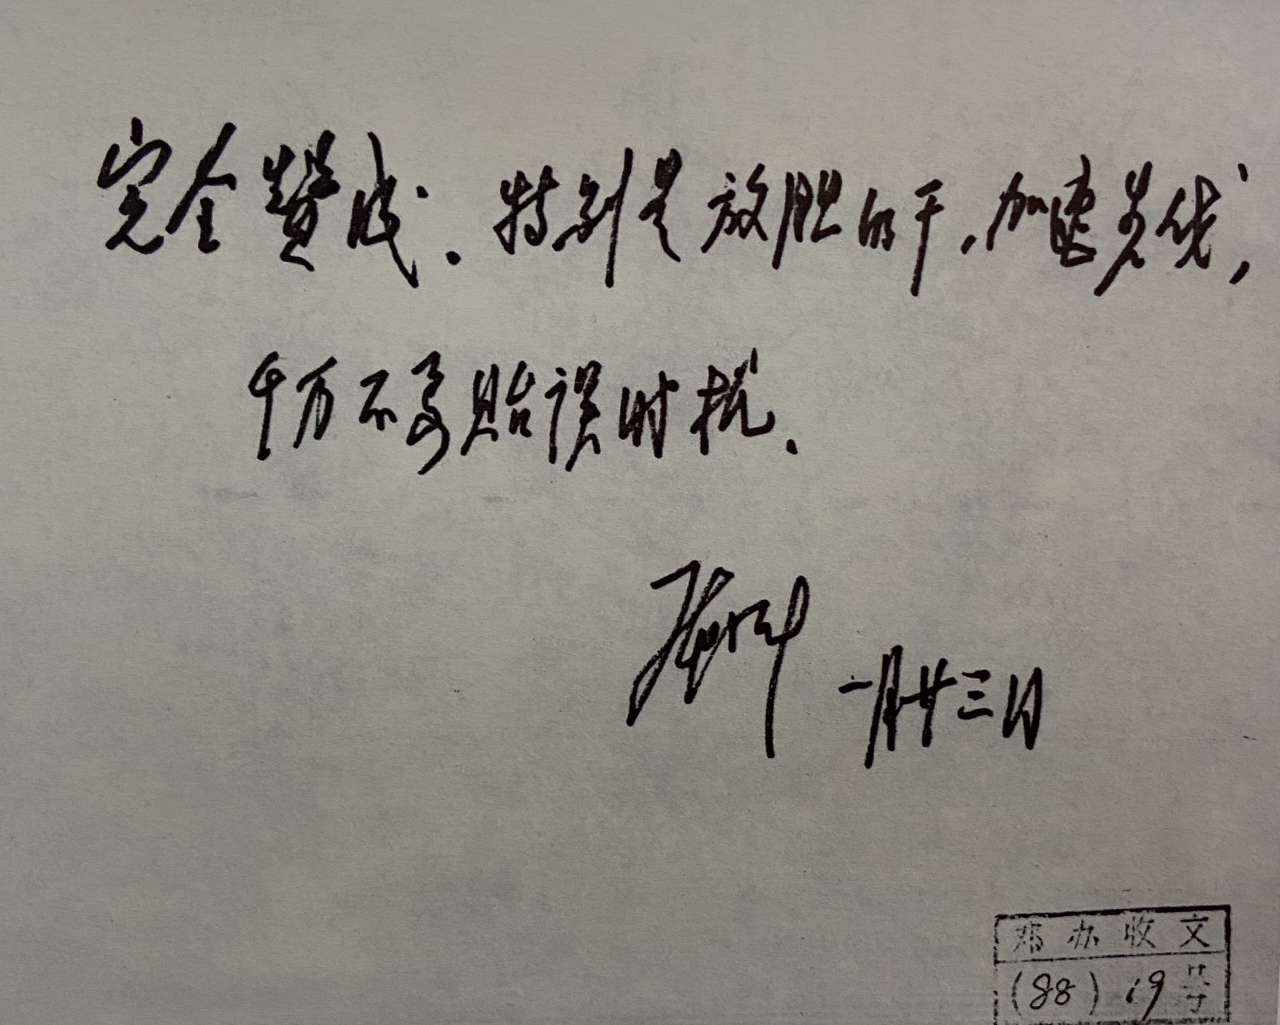 完全赞成.特别是放胆的干,加速步伐,
千万不要贻误时机.
邓小平 一月廿三日
邓办收文
(88) 19号